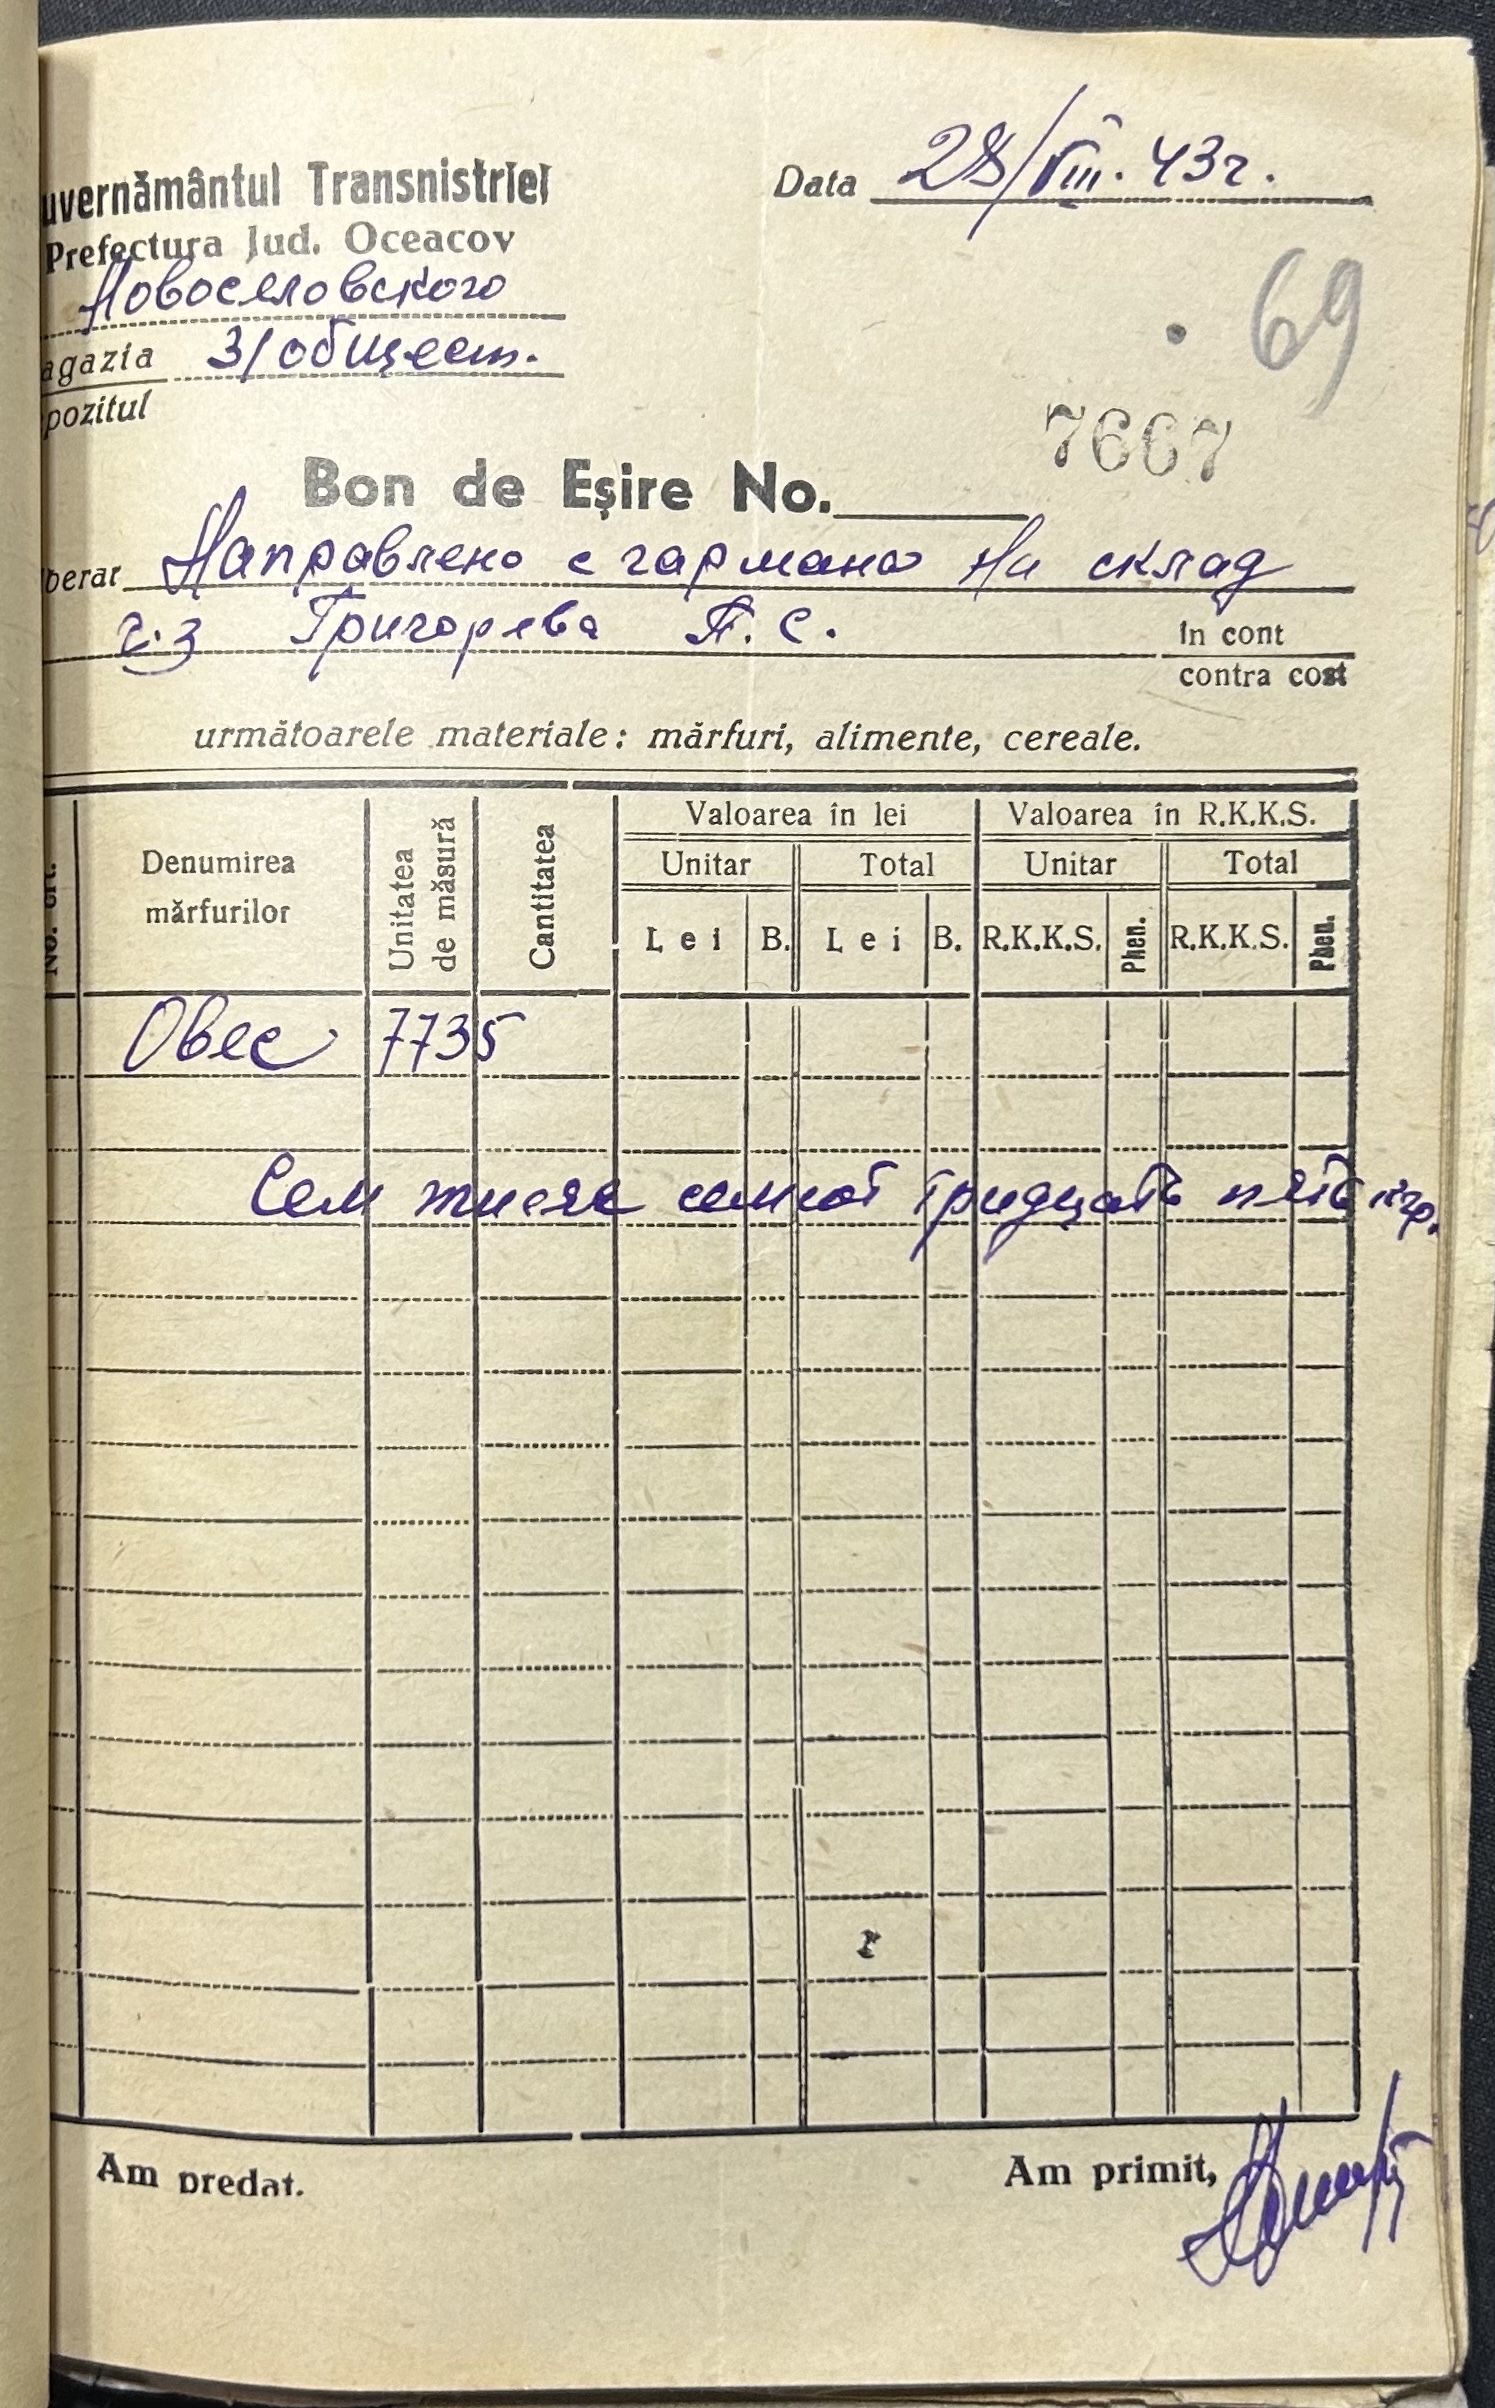 uvernământul Transnistriei
Data 28/VIII. 43г.
Prefectura Jud. Oceacov
Новоселовского
69
agazia 3/общест.
pozitul
7667
Bon de Eșire No.
berar Направлено с гармана на склад
ч-з Григорева П. С.
în cont
contra cost
următoarele materiale: mărfuri, alimente, cereale.
No. crt.
Denumirea mărfurilor
Unitatea de măsură
Cantitatea
Valoarea în lei
Valoarea în R.K.K.S.
Unitar Total Unitar Total
Lei B. Lei B. R.K.K.S. Phen. R.K.K.S. Phen.
Овес 7735
Сем тисяч семсот тридцать пять кгр.
Am predat.
Am primit,